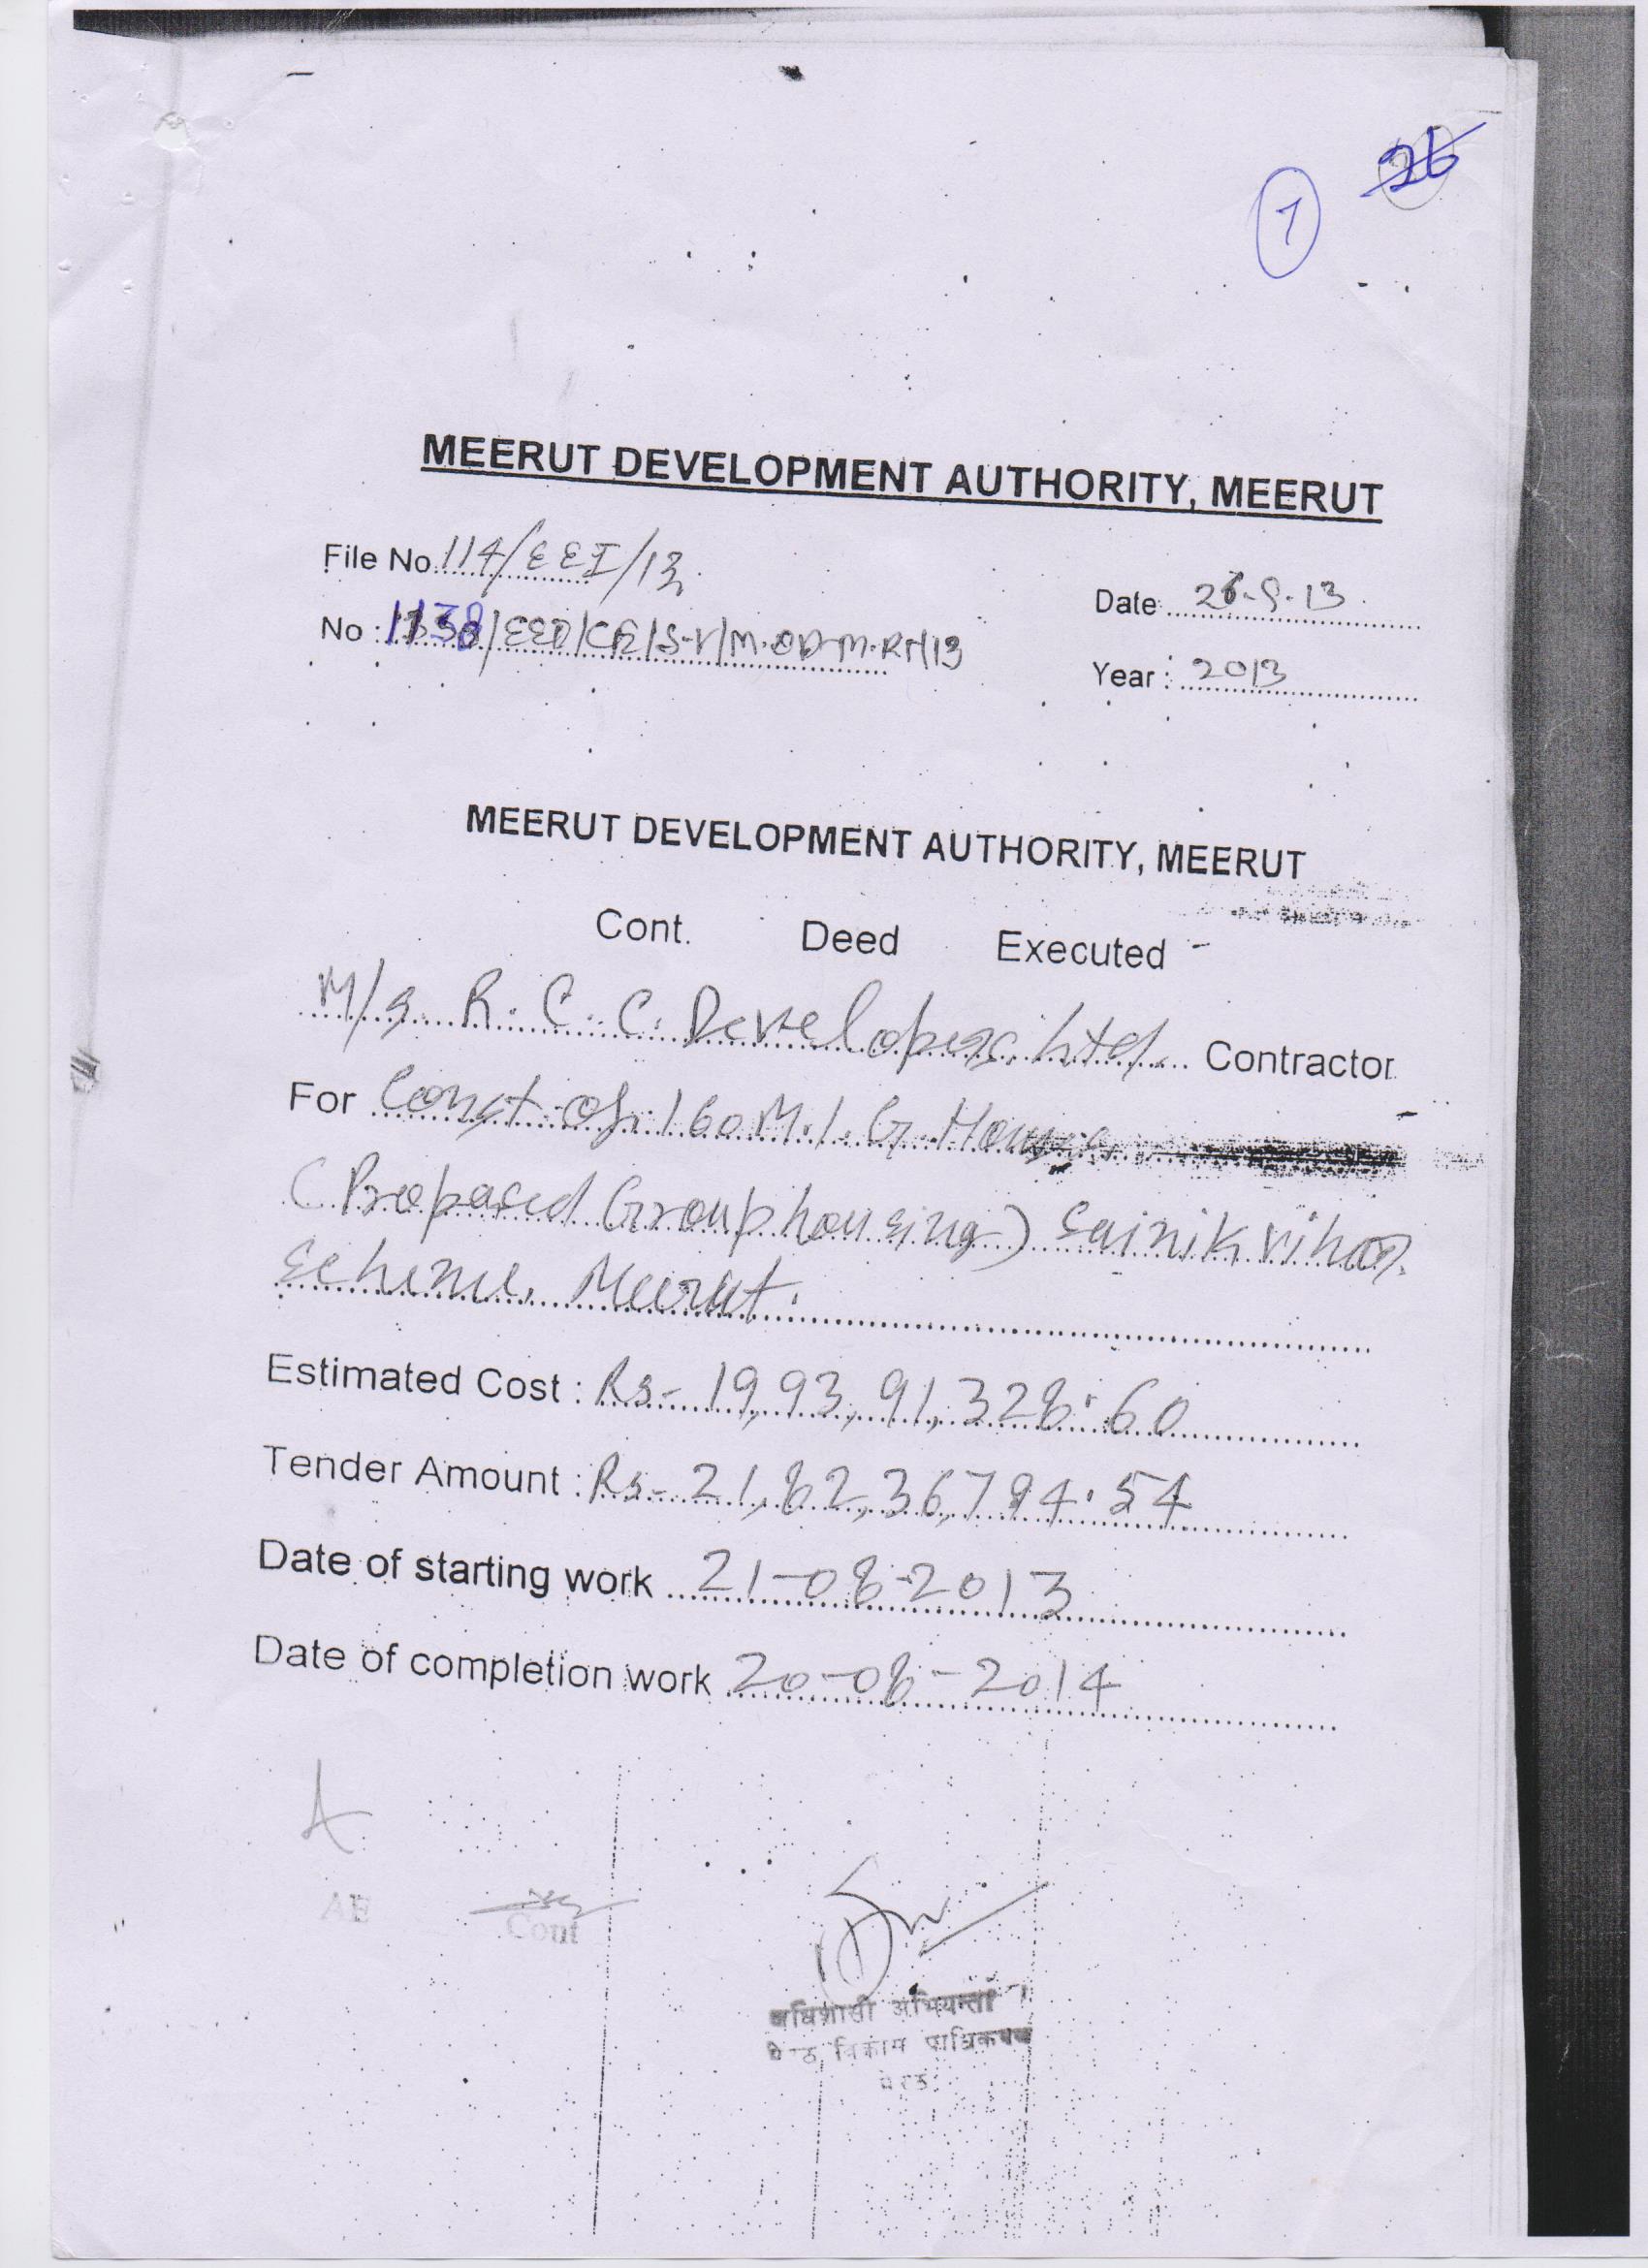 26
1
MEERUT DEVELOPMENT AUTHORITY, MEERUT
File No 114/EEI/13
Date 26-9-13
No : 1138/EED/CE/S-V/M.OD-M.RT/13
Year : 2013
MEERUT DEVELOPMENT AUTHORITY, MEERUT
Cont. Deed Executed
M/s. R. C. C. Developers. Ltd. Contractor
For Const of 160 M.I.G. Houses
(Proposed Group housing) Sainik vihar
Scheme, Meerut.
Estimated Cost : Rs- 19,93,91,328.60
Tender Amount : Rs- 21,82,36,794.54
Date of starting work 21-08-2013
Date of completion work 20-08-2014
AE
Cont
अधिशासी अभियन्ता
मेरठ विकास प्राधिकरण
मेरठ